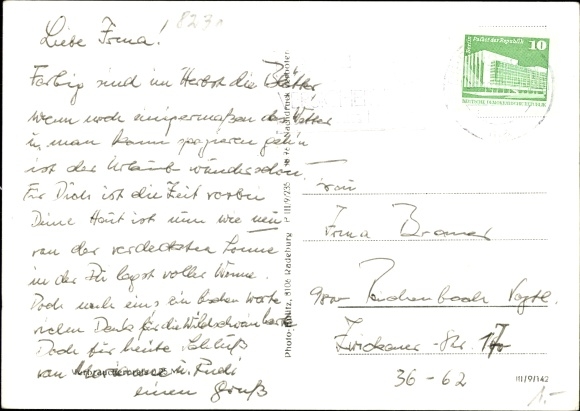 8230
Liebe Irma!
Farbig sind im Herbst die Blätter,
wenn noch einigermaßen das Wetter
u. man kann spazieren geh'n
ist der Urlaub wunderschön.
Für Dich ist die Zeit vorbei
Deine Haut ist nun wie neu
von der verdeckten Sonne
in der Du lagst voller Wonne.
Doch noch eins ein baten Worte
vielen Dank für die Wildschweinkarte
Doch für heute Schluß
von u. Rudi
einen Gruß
Photo-, 8106 Radeburg P III/9/235
Berlin, Palast der Republik
10
DEUTSCHE DEMOKRATISCHE REPUBLIK
Frau
Irma Bramer
9800 Reichenbach Vogtl.
Zwickauer-Str. 170
36-62
III/9/142
1.-